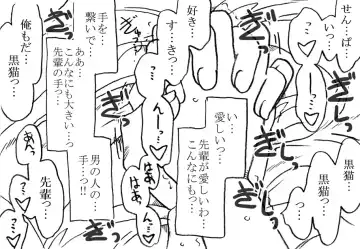 せん…ぱ…
いっ…
ぎしっ
好き…
す…きっ…
…っ…
ぎしっ
黒猫っ…
黒猫っ…
い…
愛しいっ…
先輩が愛しいわ…
こんなにもっ…
ん…っ…
はぁ…
はぁんっ…
手を…
繋いで…
ああ…
こんなにも大きい…っ
先輩の手っ…
男の人の…
手…っ!!
ぎしっ
俺もだ…
黒猫っ…
ぎしっ
あっ
先輩っ…
あっ…